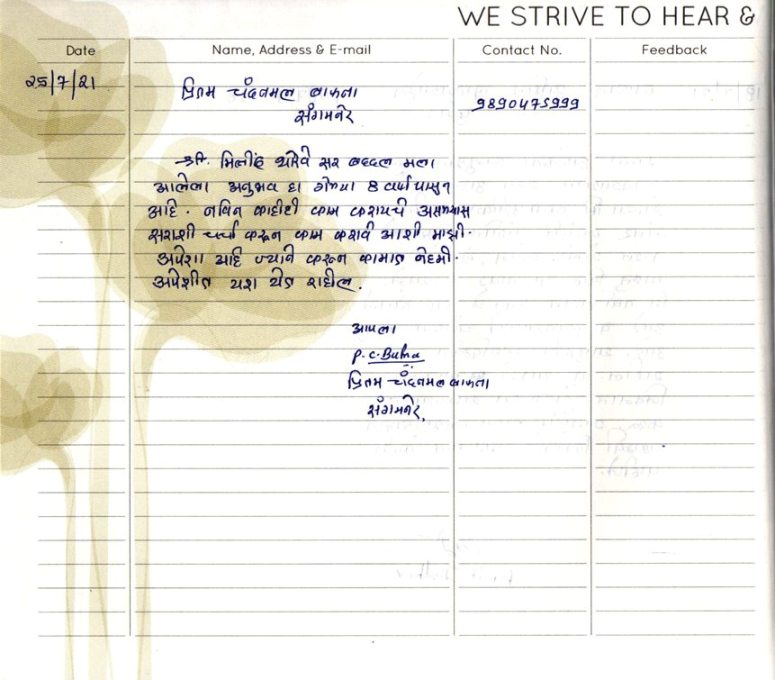 WE STRIVE TO HEAR &
Date Name, Address & E-mail Contact No. Feedback
25/7/21 प्रितम चंदनमल बाफना 9890475999
संगमनेर.
श्री. मिलींद थोरेवे सर बद्दल मला
आलेला अनुभव हा गेल्या 8 वर्षा पासुन
आहे. नविन काहीही काम करायचे असल्यास
सराशी चर्चा करून काम करावे आशी माझी.
अपेक्षा आहे ज्याने करून कामात नेहमी.
अपेक्षीत यश येत राहील.
आपला
P.C.Bafna
प्रितम चंदनमल बाफना
संगमनेर.